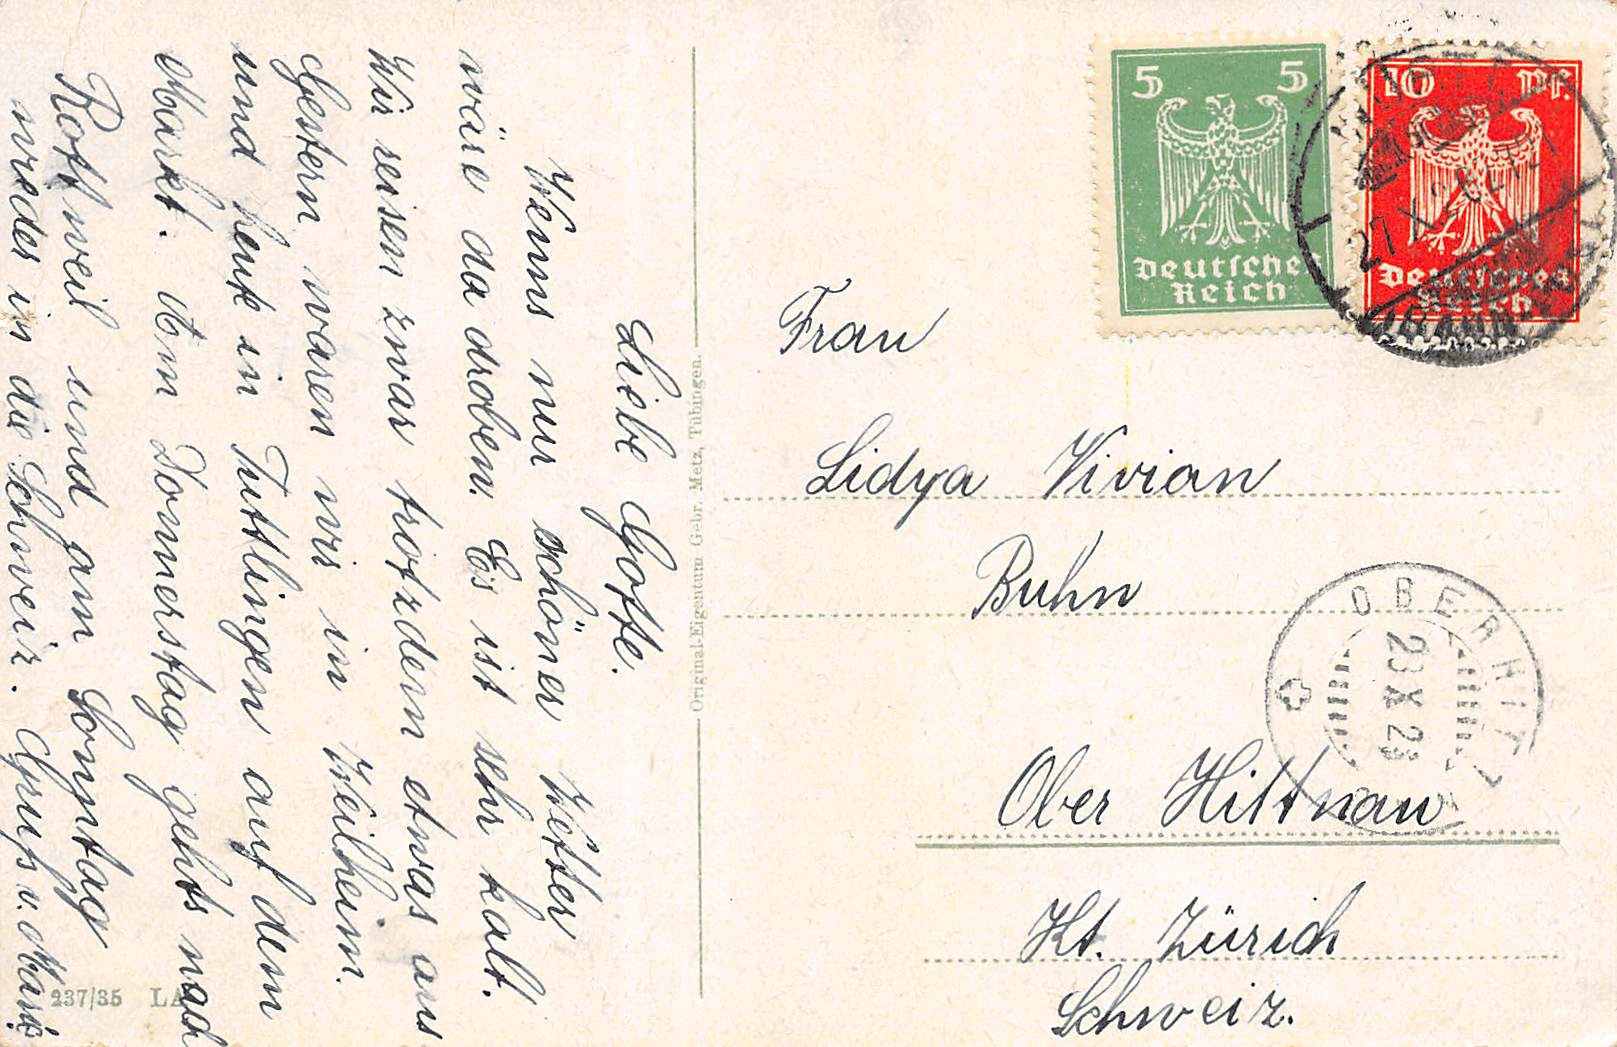 Liebe Gotte.
Wenns nur schöner Wetter
wäre da droben. Es ist sehr kalt.
Wir reisen zwar trotzdem etwas aus
Gestern waren wir in Weilheim.
und heute in Tuttlingen auf dem
Markt. Am Donnerstag gehts nach
Rottweil und am Sonntag
wieder in die Schweiz. Gruss v. Marie
Original-Eigentum Gebr. Metz, Tübingen.
237/35 LA
5 5
Deutsches
Reich
10 Pf.
Deutsches
Reich
Frau
Lidya Vivian
Buhn
Ober Hittnau
Kt. Zürich
Schweiz.